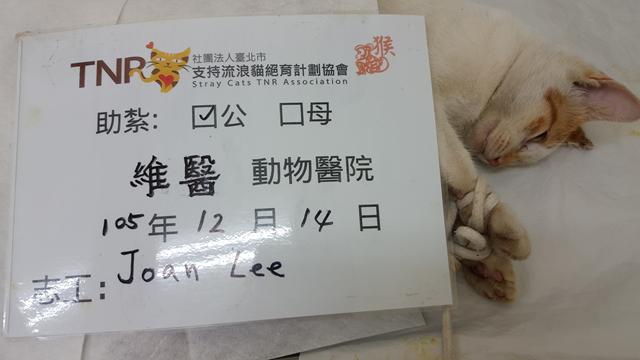 TNR 社團法人臺北市
支持流浪貓絕育計劃協會
Stray Cats TNR Association
猴
助紮: ☑公 ☐母
維醫 動物醫院
105年 12 月 14 日
志工: Joan Lee